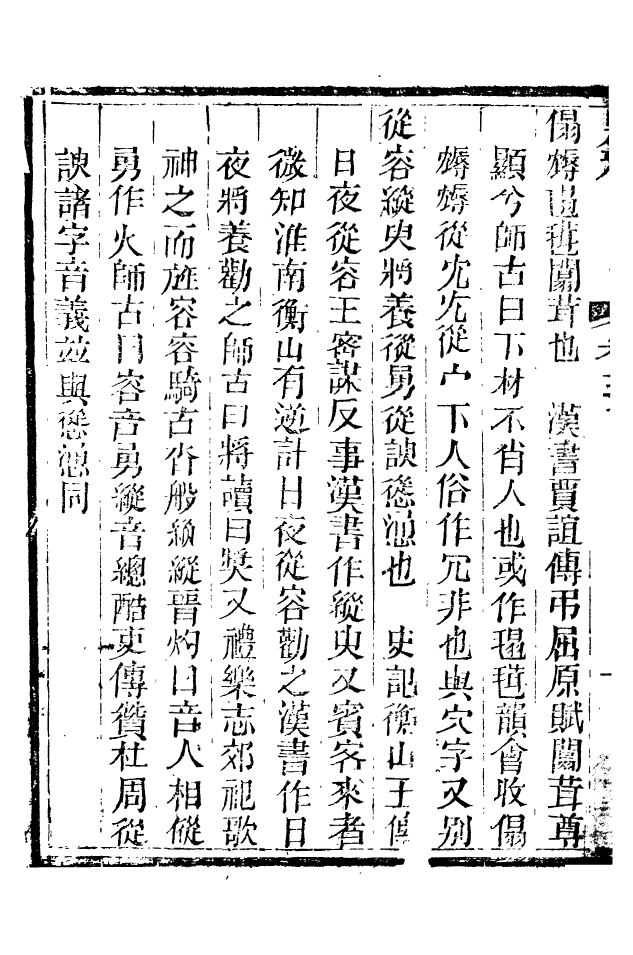 傝㛗𣯚毾闒茸也　漢書賈誼傳弔屈原賦闒茸尊
顯兮師古曰下材不肖人也或作毾㲪韻會收傝
㛗㛗從宂宂從宀下人俗作冗非也與穴字又別
從容縱臾將養從㬰從諛慫恿也　史記衡山王傳
日夜從容王密謀反事漢書作縱臾又賓客來者
微知淮南衡山有逆計日夜從容勸之漢書作日
夜將養勸之師古曰將讀曰奬又禮樂志郊祀歌
神之而旌容容騎沓沓般縱縱晉灼曰音人相從
勇作火師古曰容音勇縱音總酷吏傳贊杜周從
諛諸字音義竝與慫恿同